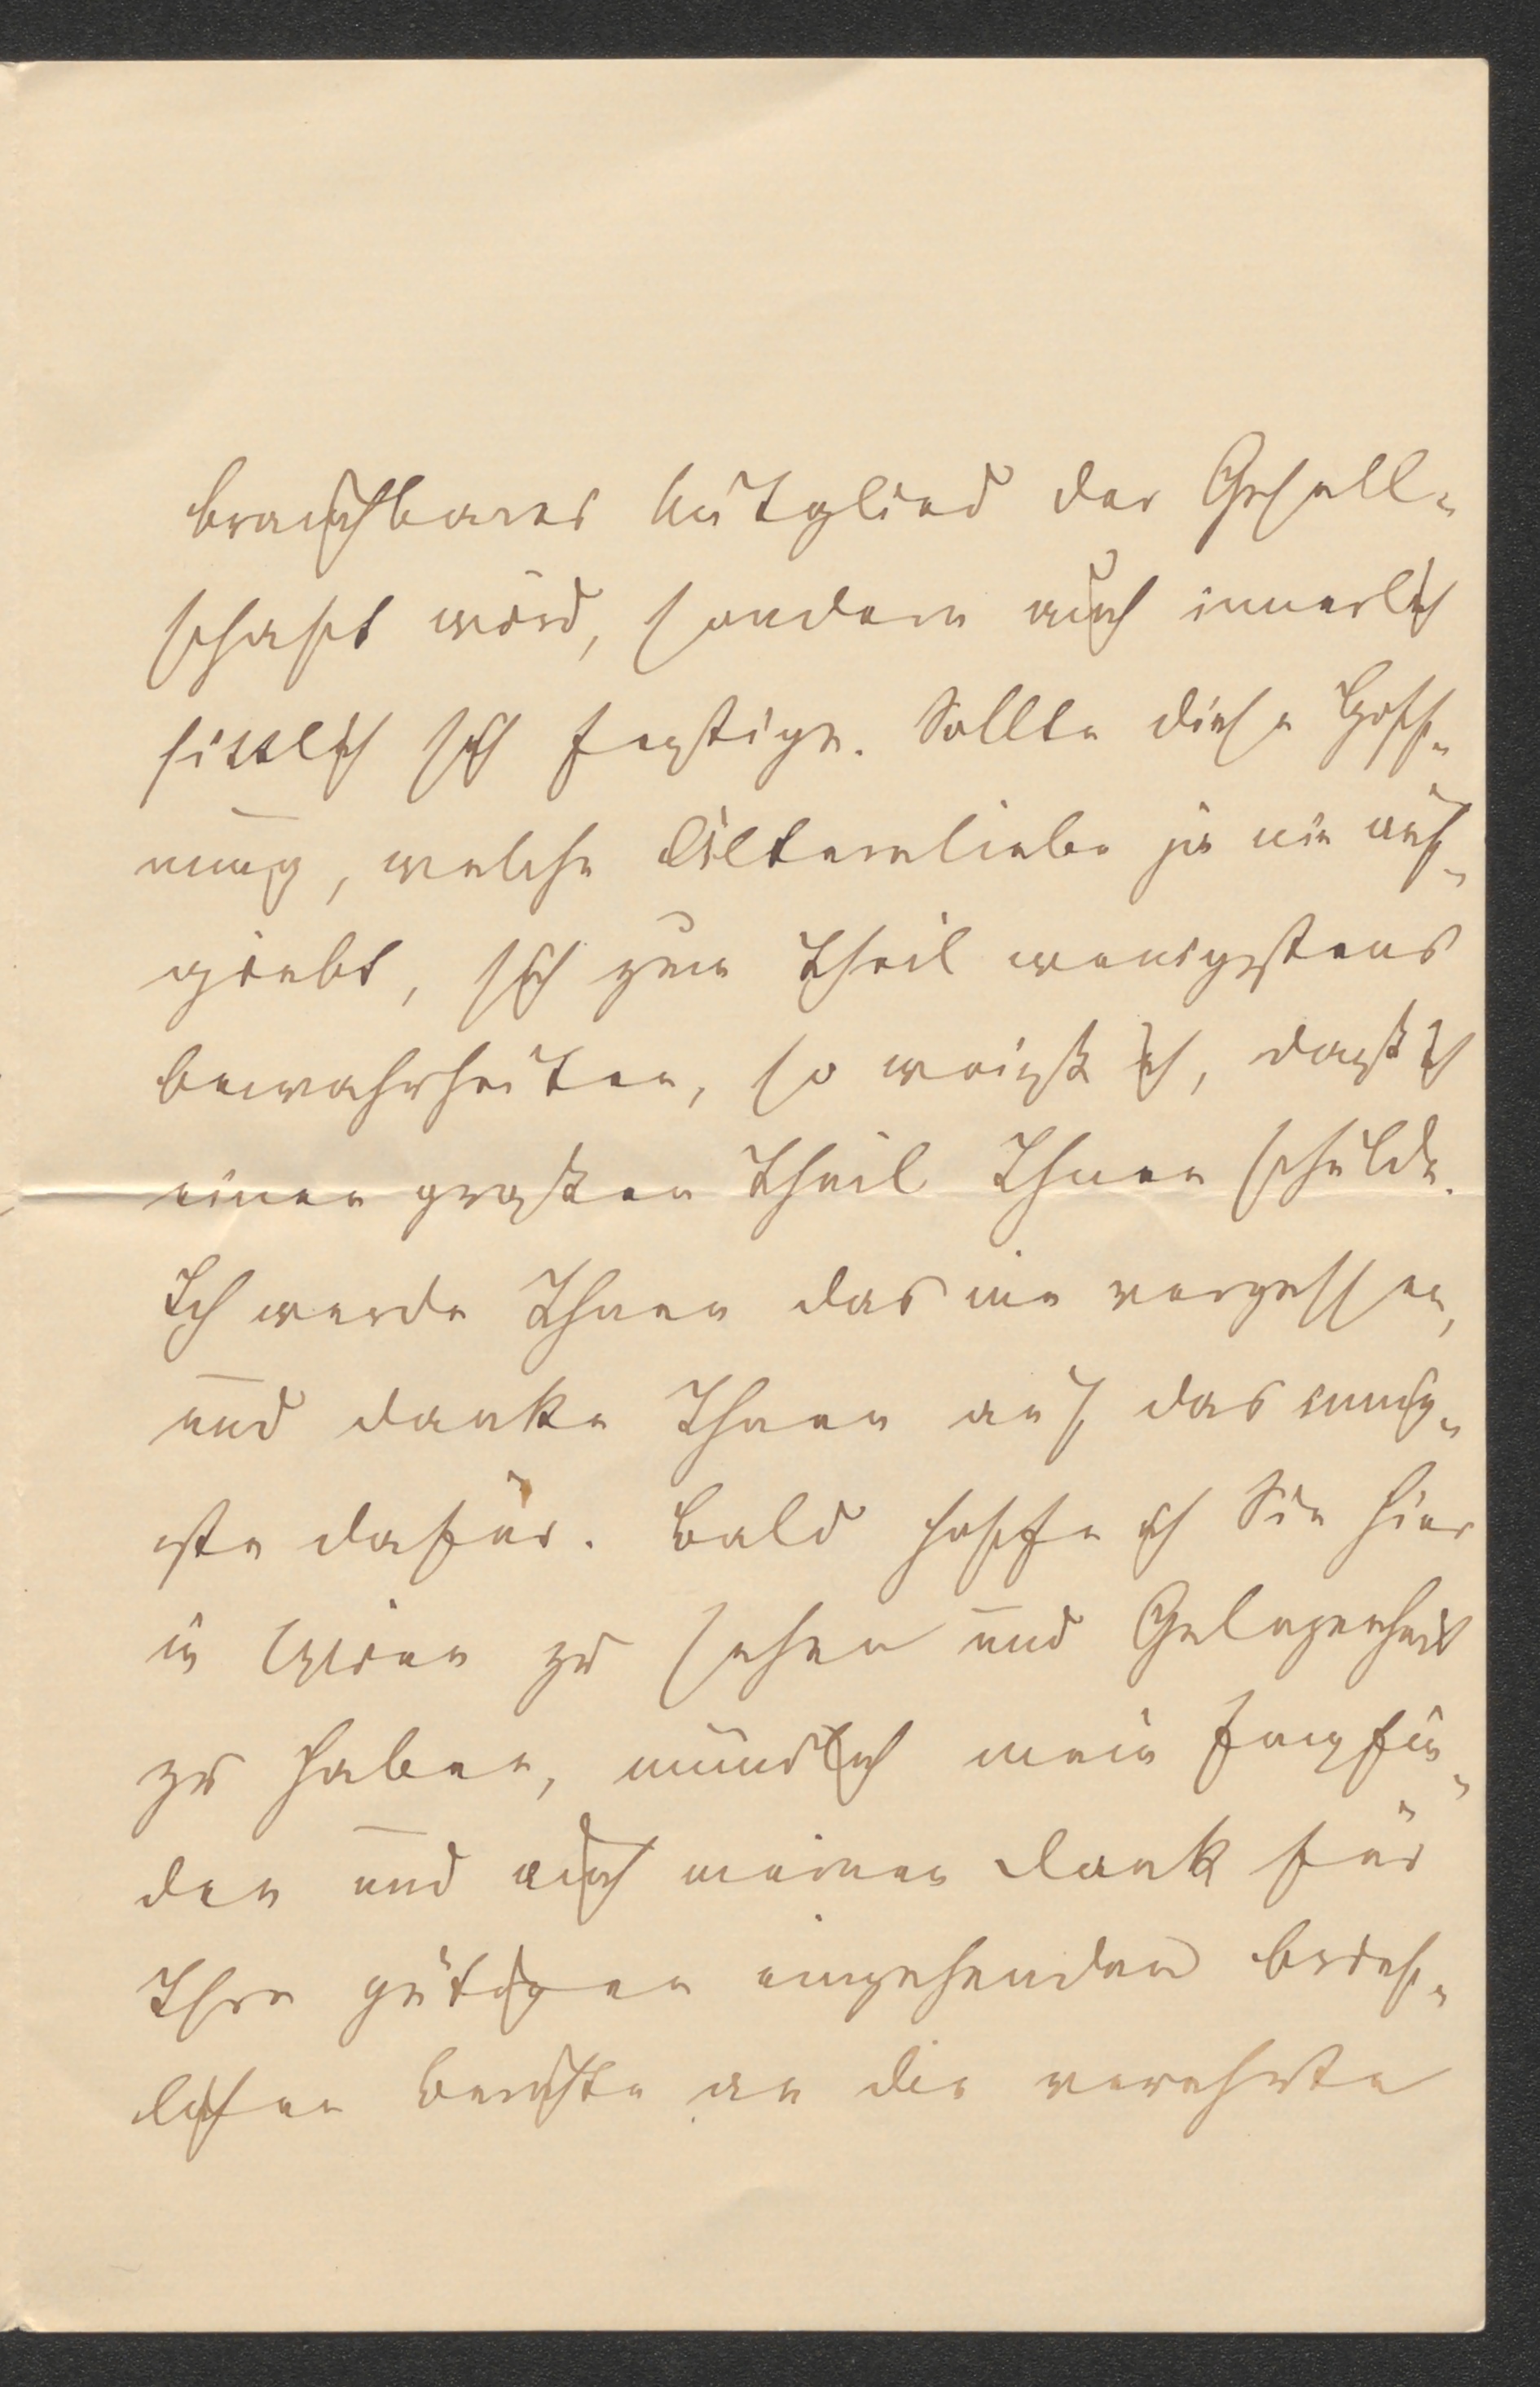 brauchbares Mitglied der Gesell-
schaft wird, sondern auch innerlich
sittlich sich festige. Sollte diese Hoff-
nung, welche Älternliebe ja nie auf-
giebt, sich zum Theil wenigstens
bewahrheiten, so weiß ich, daß ich
einen großen Theil Ihnen schulde.
Ich werde Ihnen das nie vergessen,
und danke Ihnen auf das innig-
ste dafür. Bald hoffe ich Sie hier
in Wien zu sehen und Gelegenheit
zu haben, mündlich mein Empfin-
den und auch meinen Dank für
Ihre gütigen eingehenden brief-
lichen Berichte an die verehrte